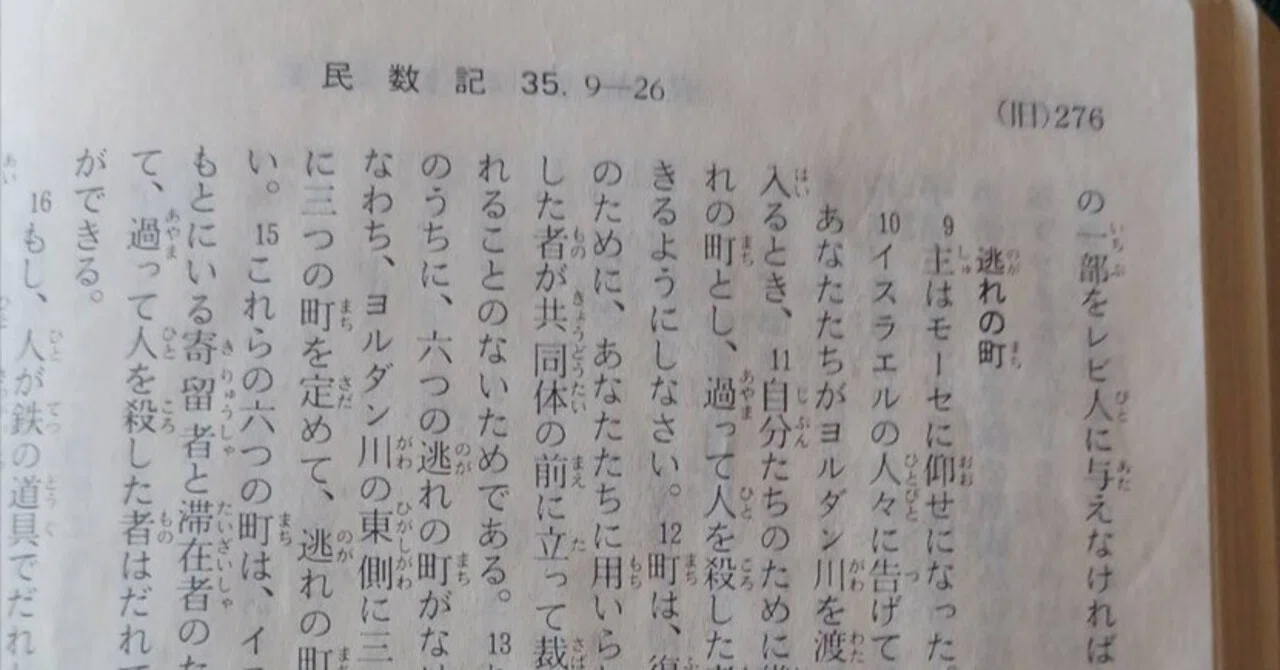 民数記 35. 9—26
(旧)276
の一部をレビ人に与えなければ
逃れの町
9 主はモーセに仰せになった。
10 イスラエルの人々に告げて
あなたたちがヨルダン川を渡
入るとき、11 自分たちのために
れの町とし、過って人を殺した
きるようにしなさい。12 町は、復
のために、あなたたちに用いら
した者が共同体の前に立って裁
れることのないためである。13
のうちに、六つの逃れの町がな
なわち、ヨルダン川の東側に三
に三つの町を定めて、逃れの町
い。15 これらの六つの町は、イ
もとにいる寄留者と滞在者のた
て、過って人を殺した者はだれ
ができる。
16 もし、人が鉄の道具でだれ